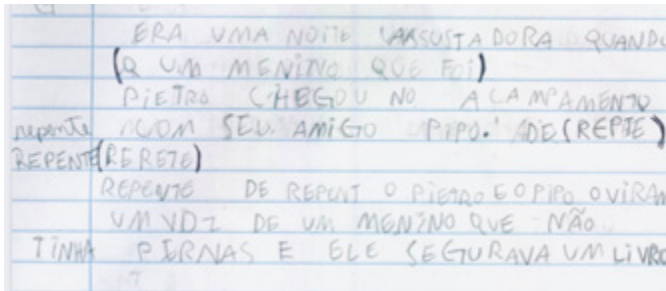 ERA UMA NOITE ASSUSTADORA QUANDO
(Q UM MENINO QUE FOI)
PIETRO CHEGOU NO ACAMPAMENTO
repente COM SEU AMIGO PIPO. DE (REPTE)
REPENTE (RERETE)
REPENTE DE REPENT O PIETRO E O PIPO OVIRAM
UM VOZ DE UM MENINO QUE NÃO
TINHA PERNAS E ELE SEGURAVA UM LIVRO